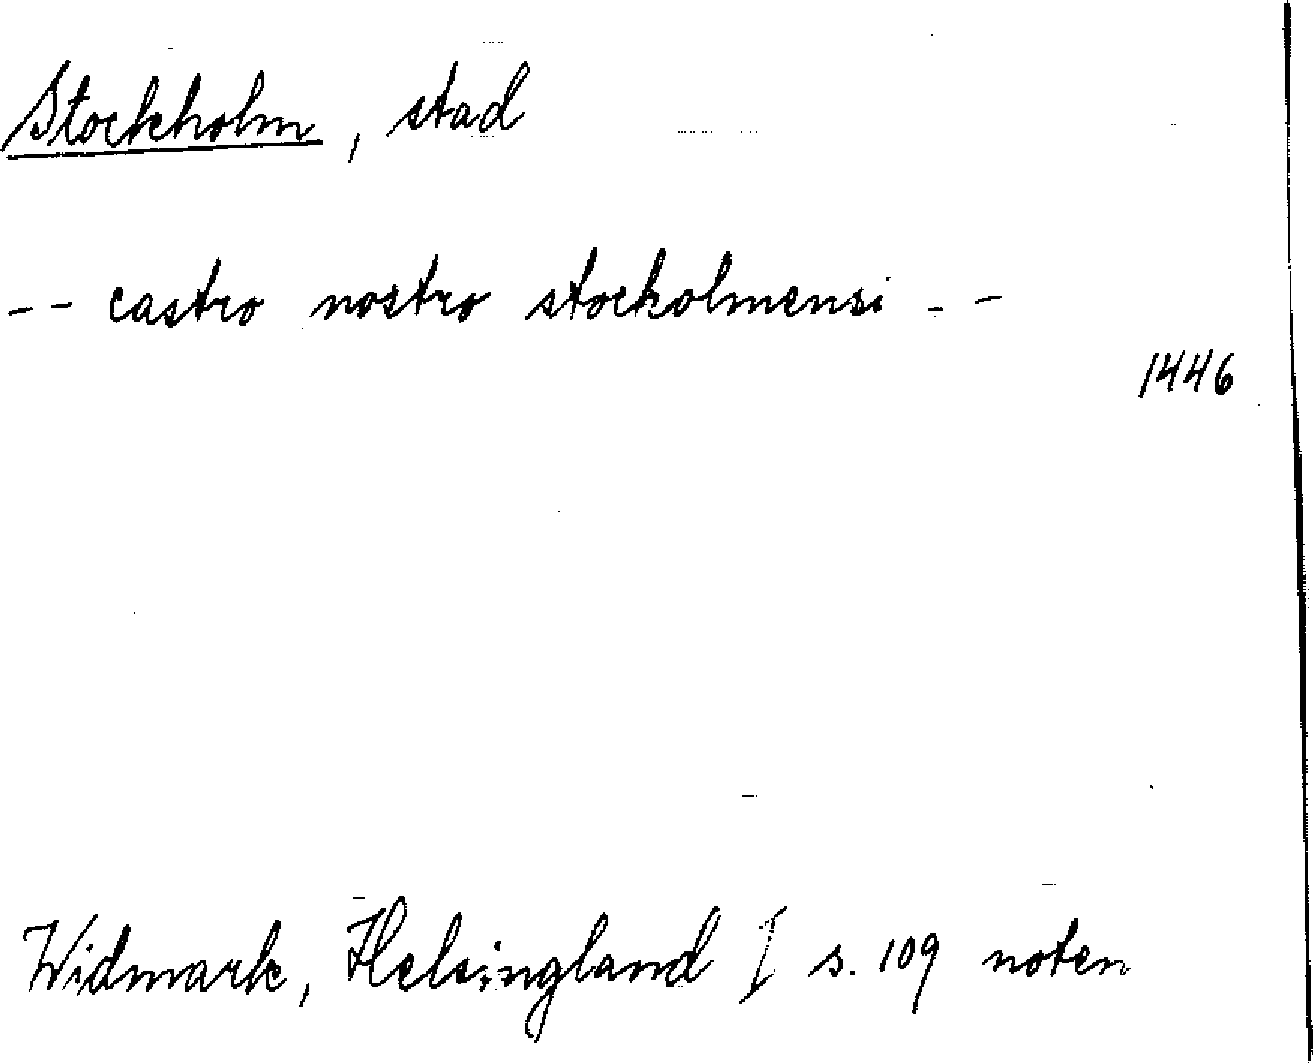 Stockholm, stad
-- castro nostro stockolmensi --
1446
Widmark, Helsingland I s. 109 noten